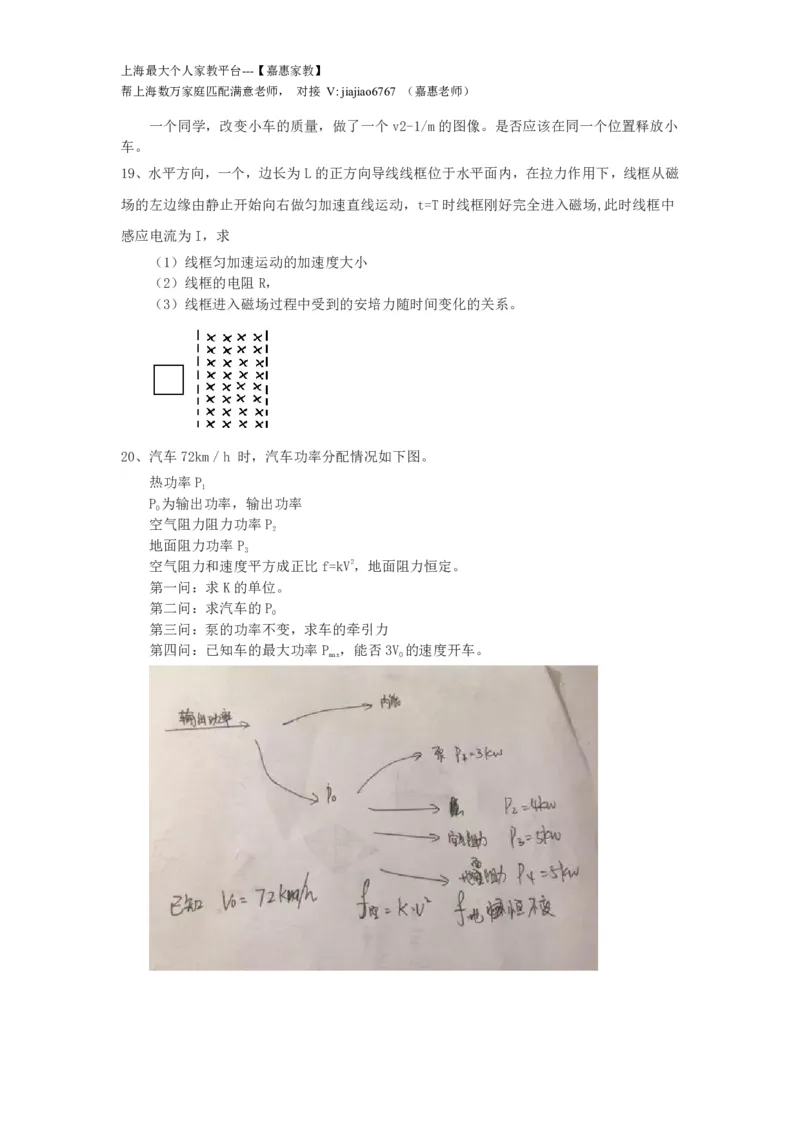 上海最大个人家教平台---【嘉惠家教】
帮上海数万家庭匹配满意老师， 对接 V: jiajiao6767 （嘉惠老师）
一个同学，改变小车的质量，做了一个 v2-1/m 的图像。是否应该在同一个位置释放小
车。
19、水平方向，一个，边长为 L 的正方向导线线框位于水平面内，在拉力作用下，线框从磁
场的左边缘由静止开始向右做匀加速直线运动，t=T 时线框刚好完全进入磁场,此时线框中
感应电流为 I，求
（1）线框匀加速运动的加速度大小
（2）线框的电阻 R，
（3）线框进入磁场过程中受到的安培力随时间变化的关系。
20、汽车 72km / h 时，汽车功率分配情况如下图。
热功率 P₁
P₀为输出功率，输出功率
空气阻力阻力功率 P₂
地面阻力功率 P₃
空气阻力和速度平方成正比 f=kV²，地面阻力恒定。
第一问：求 K 的单位。
第二问：求汽车的 P₀
第三问：泵的功率不变，求车的牵引力
第四问：已知车的最大功率 Pmax，能否 3V₀ 的速度开车。
输出功率
内能
泵 P₁=3kw
P₀
P₂=4kw
空气阻力 P₃=5kw
地面阻力 P₄=5kw
已知 V₀=72km/h f空=K·V² f地 恒不变